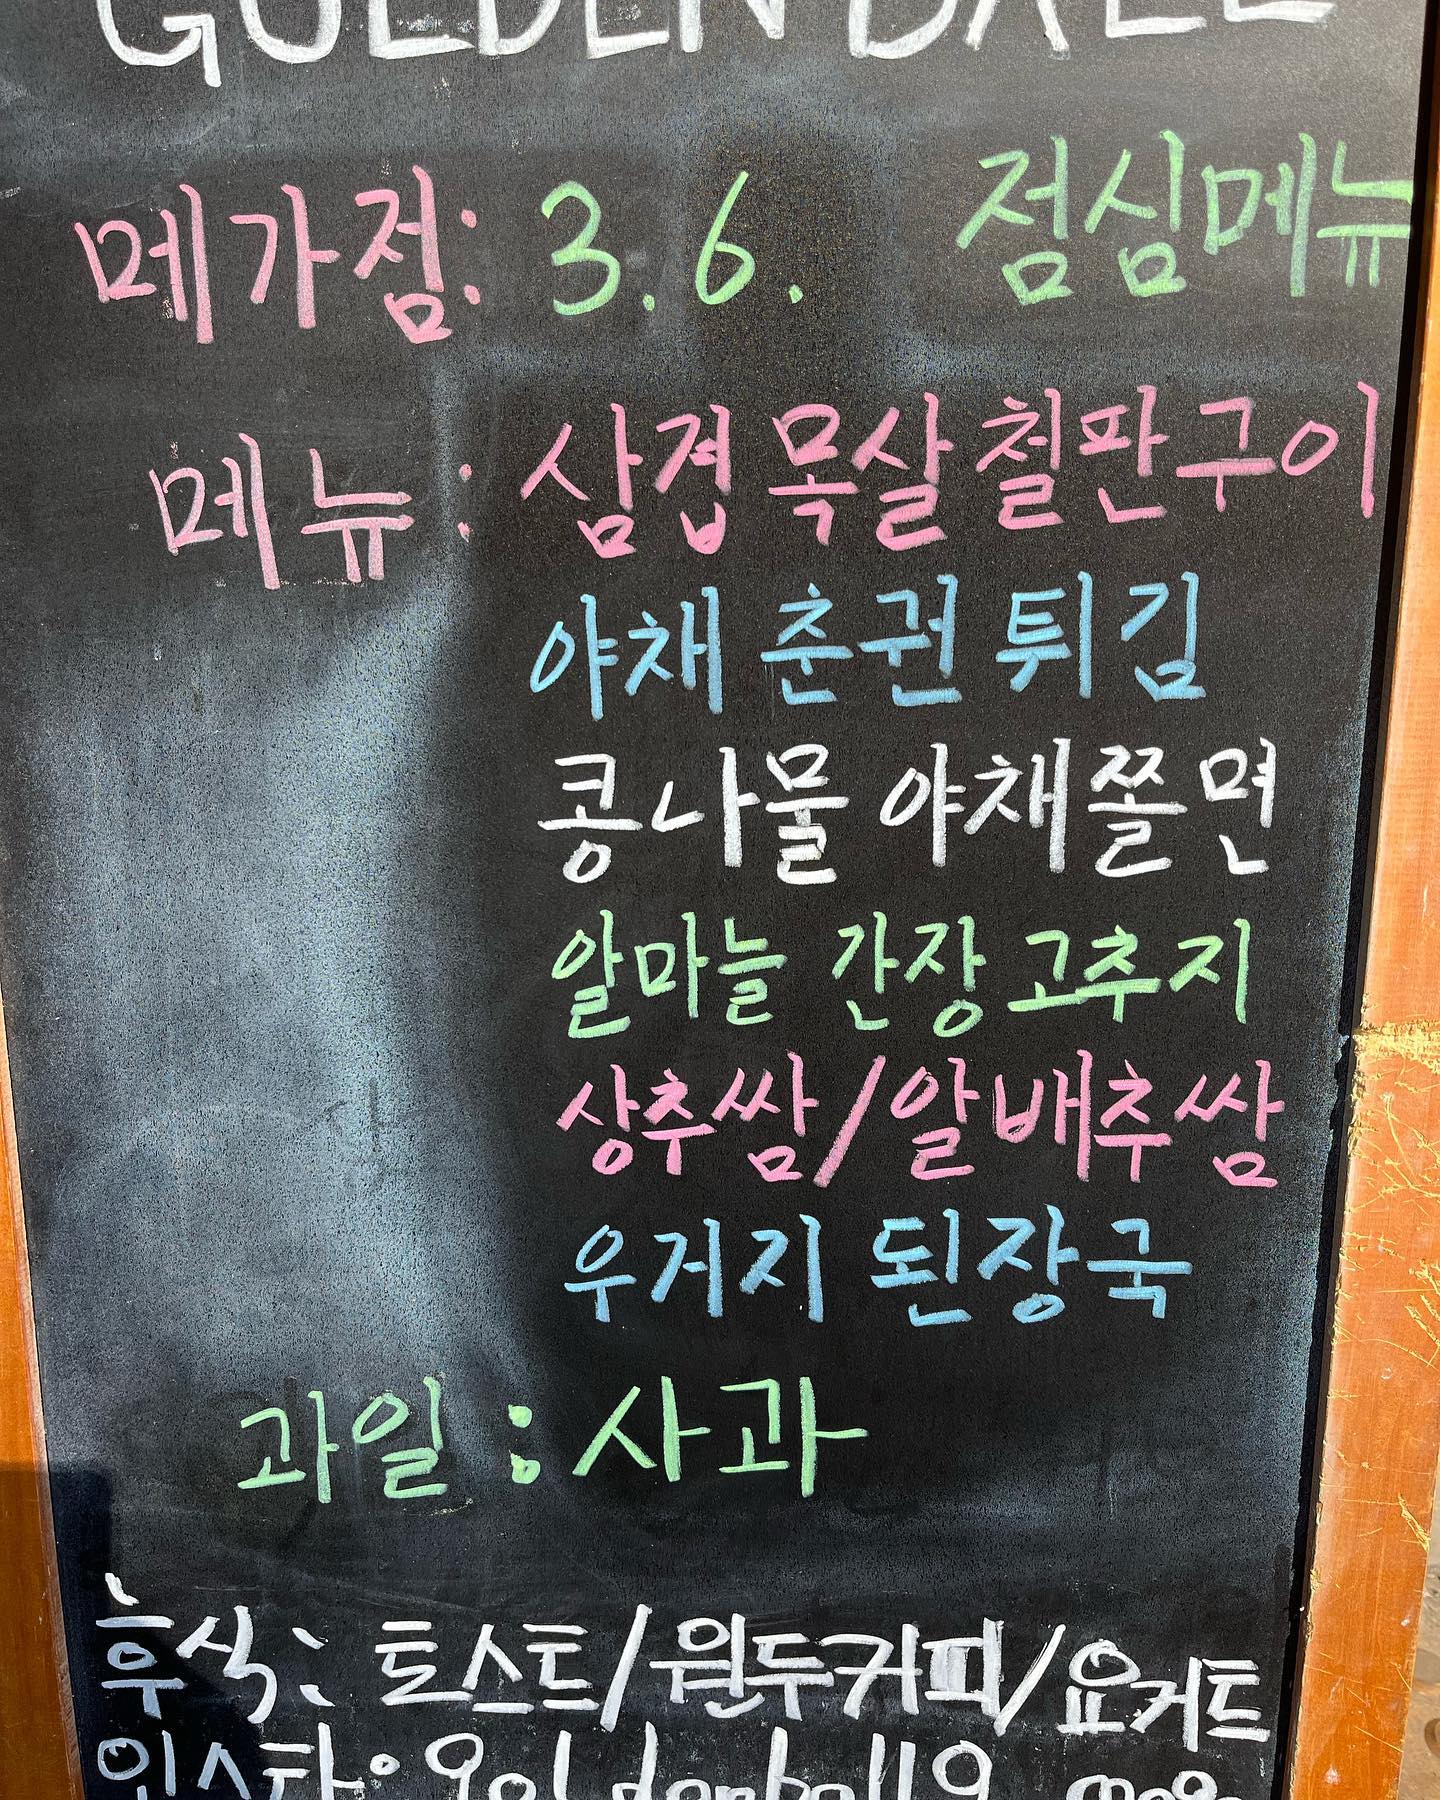 GOLDEN BALL
메가점: 3.6. 점심메뉴
메뉴: 삼겹 목살 철판구이
야채 춘권 튀김
콩나물 야채쫄면
알마늘 간장고추지
상추쌈/알배추쌈
우거지 된장국
과일: 사과
후식: 토스트/원두커피/요거트
인스타: